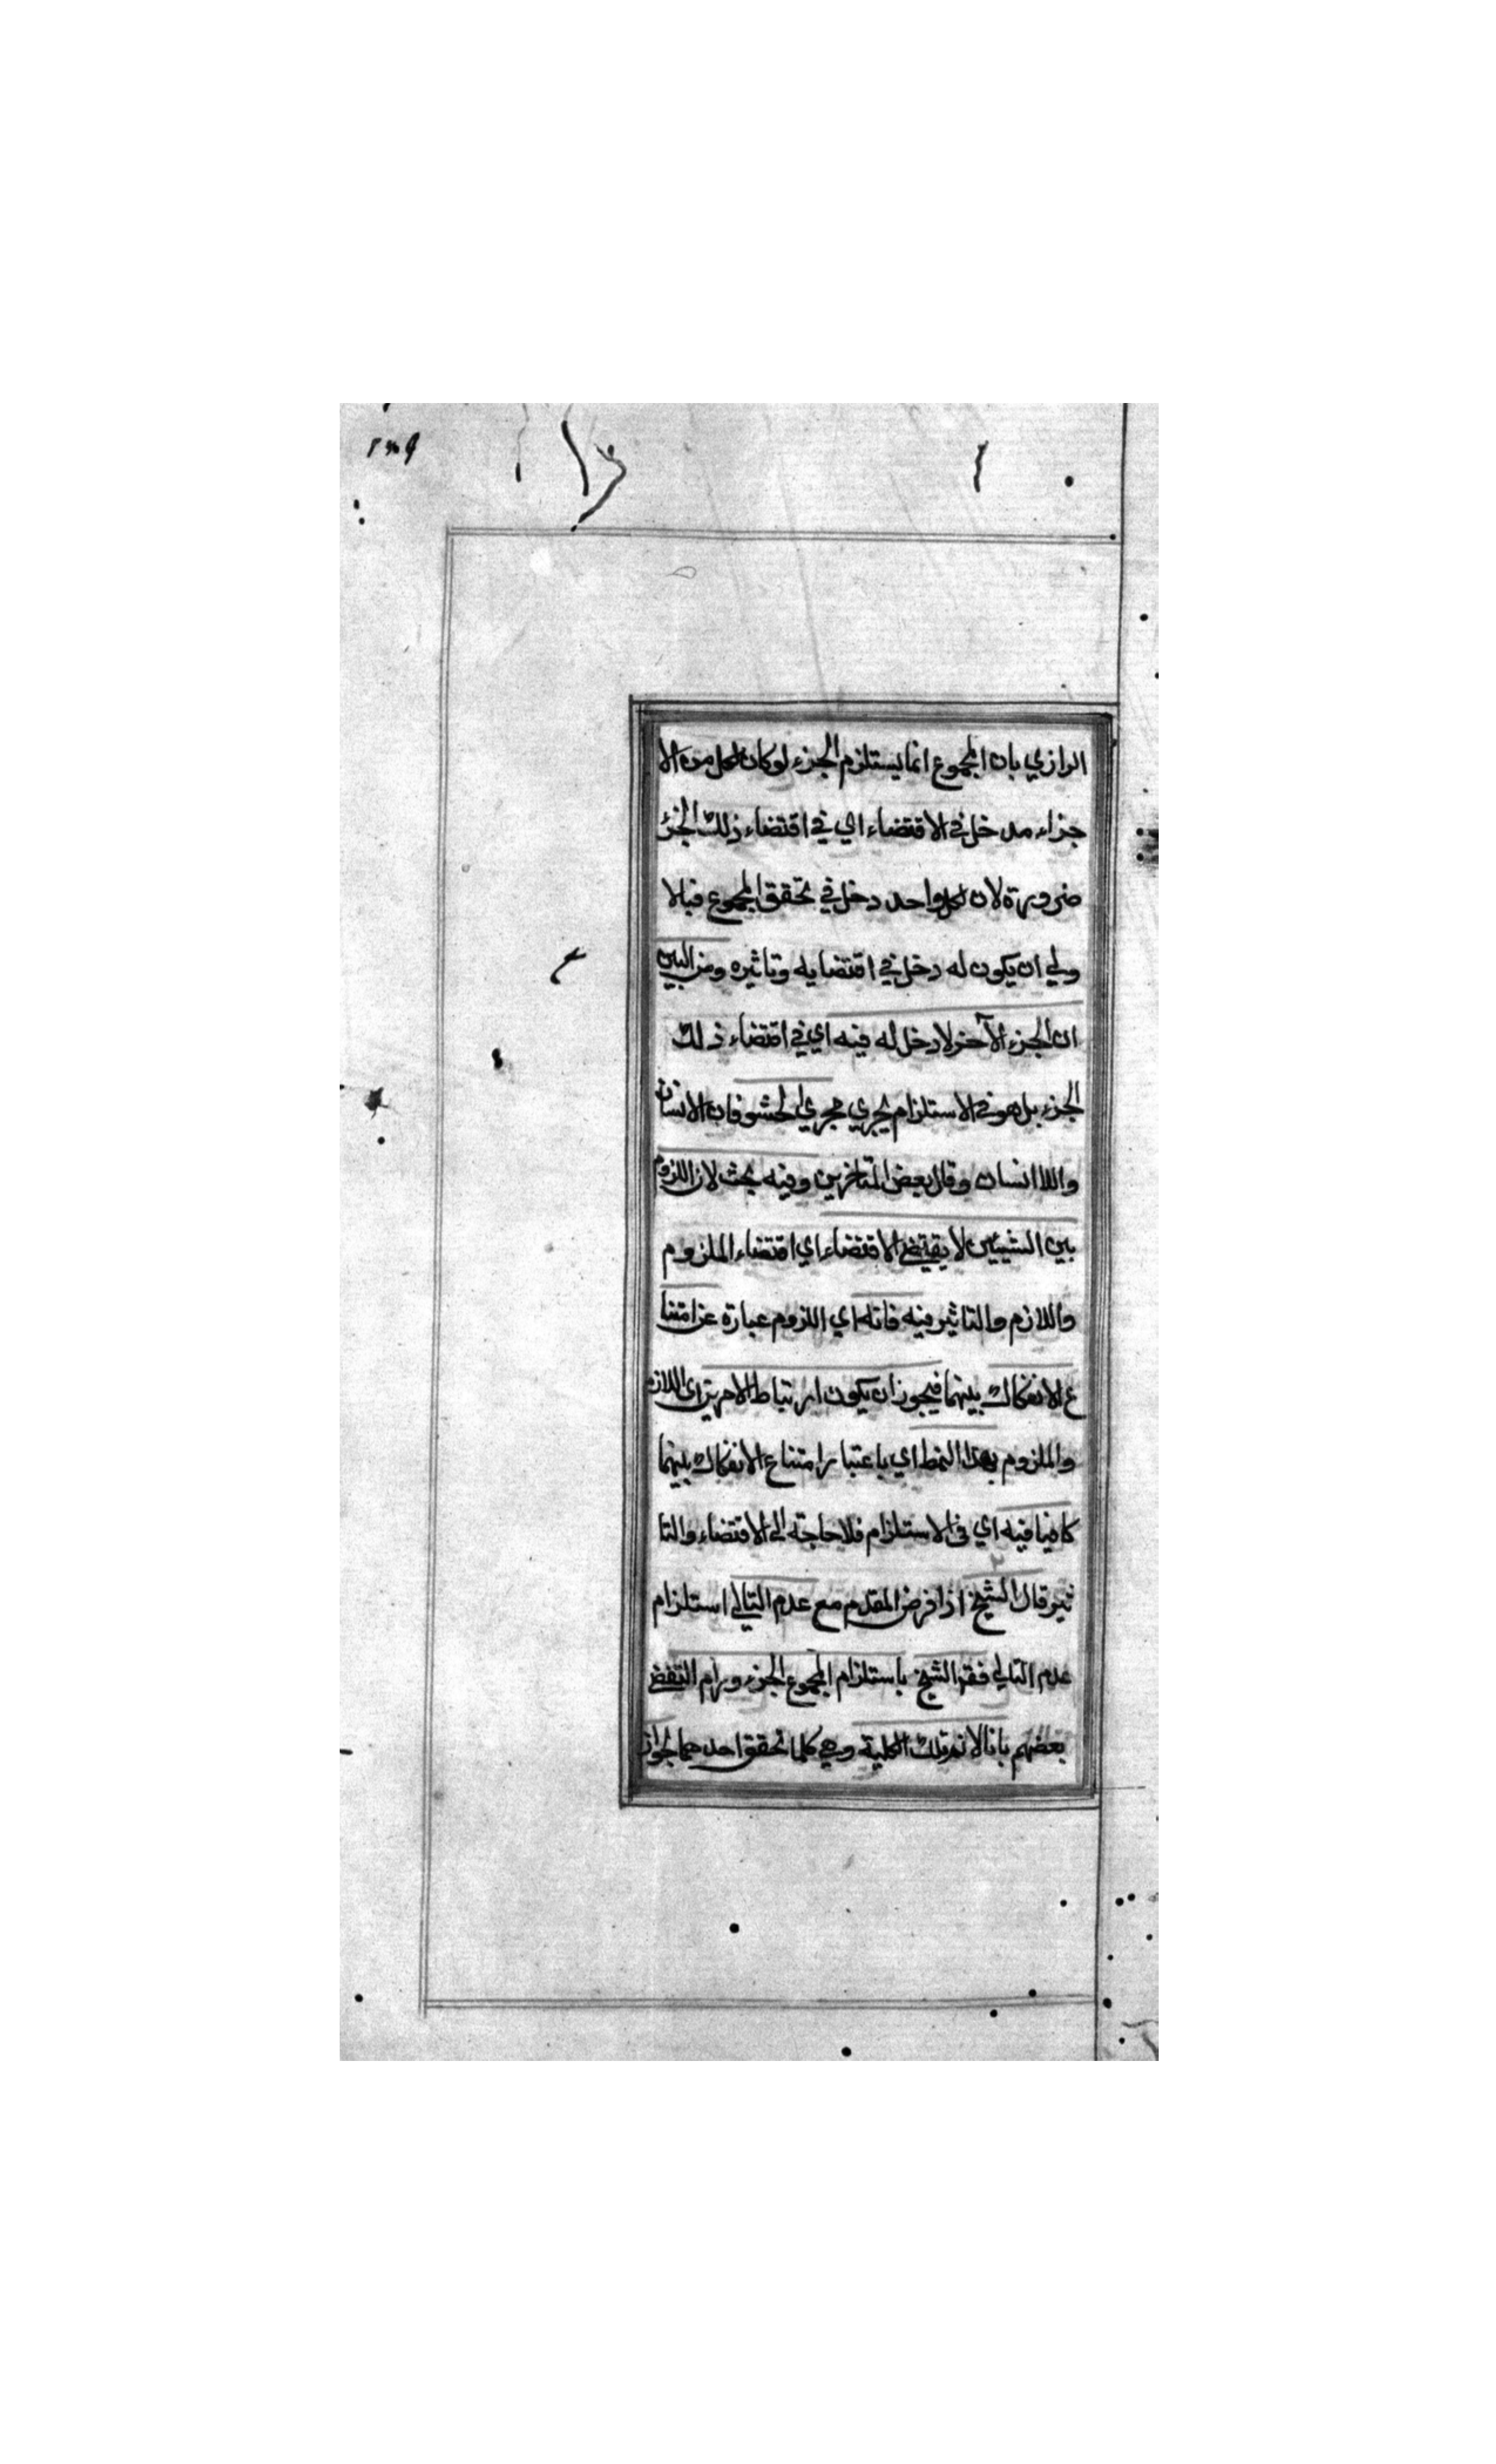 الرازي بان المجموع انما يستلزم الجزء لو كان لكل من الا
جزاء مدخل في الاقتضاء اي في اقتضاء ذلك الجزء
ضرورة لان لكل واحد دخل في تحقق المجموع فبالا
ولي ان يكون له دخل في اقتضايه وتاثيره ومن البين
ان الجزء الآخر لا دخل له فيه اي في اقتضاء ذلك
الجزء بل هو في الاستلزام يجري مجري الحشو فان الانسان
واللا انسان وقال بعض المتاخرين وفيه بحث لان اللزوم
بين الشيئين لا يقتضي الاقتضاء اي اقتضاء الملزوم
واللازم والتاثير فيه فانه اي اللزوم عبارة عن امتنا
ع الانفكاك بينهما فيجوز ان يكون ارتباط الامرين اي اللازم
والملزوم بهذا النمط اي باعتبار امتناع الانفكاك بينهما
كافيا فيه اي في الاستلزام فلا حاجته الى الاقتضاء والتا
ثير قال الشيخ اذا فرض المقدم مع عدم التالي استلزام
عدم التالي فقر الشيخ باستلزام المجموع الجزء ورام النقض
بعضهم بانا لانم تلك الكلية وهي كلما تحقق احدهما لجواز